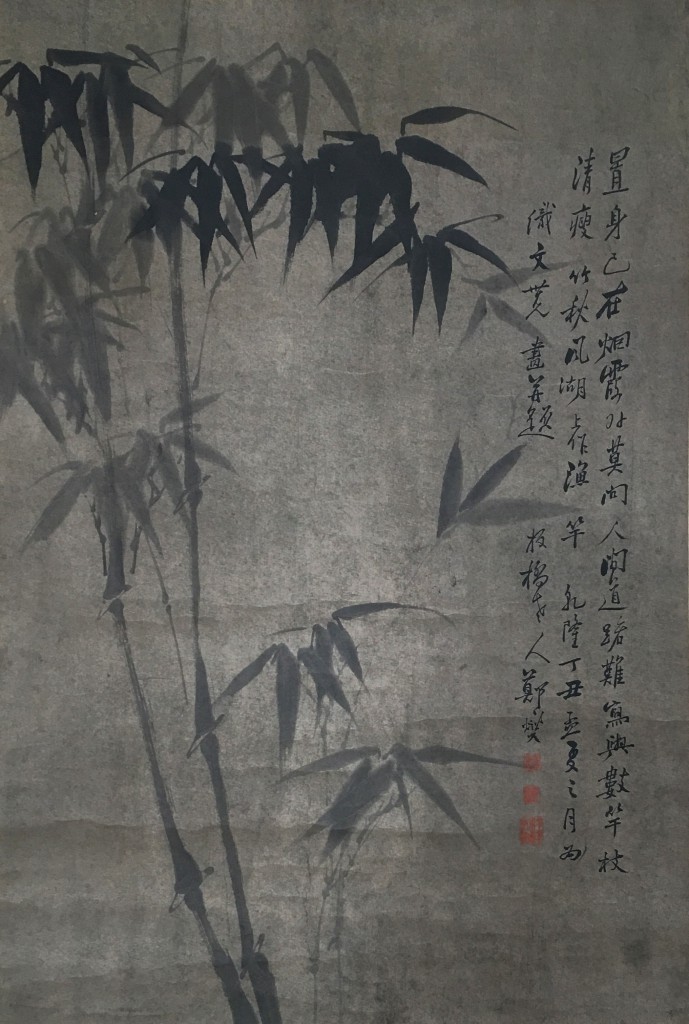 置身已在烟霞外莫问人間道路難寫與數竿枝
清瘦竹秋風湖上作漁竿 乾隆丁丑孟夏之月為
文 畫并題 板橋老人鄭燮